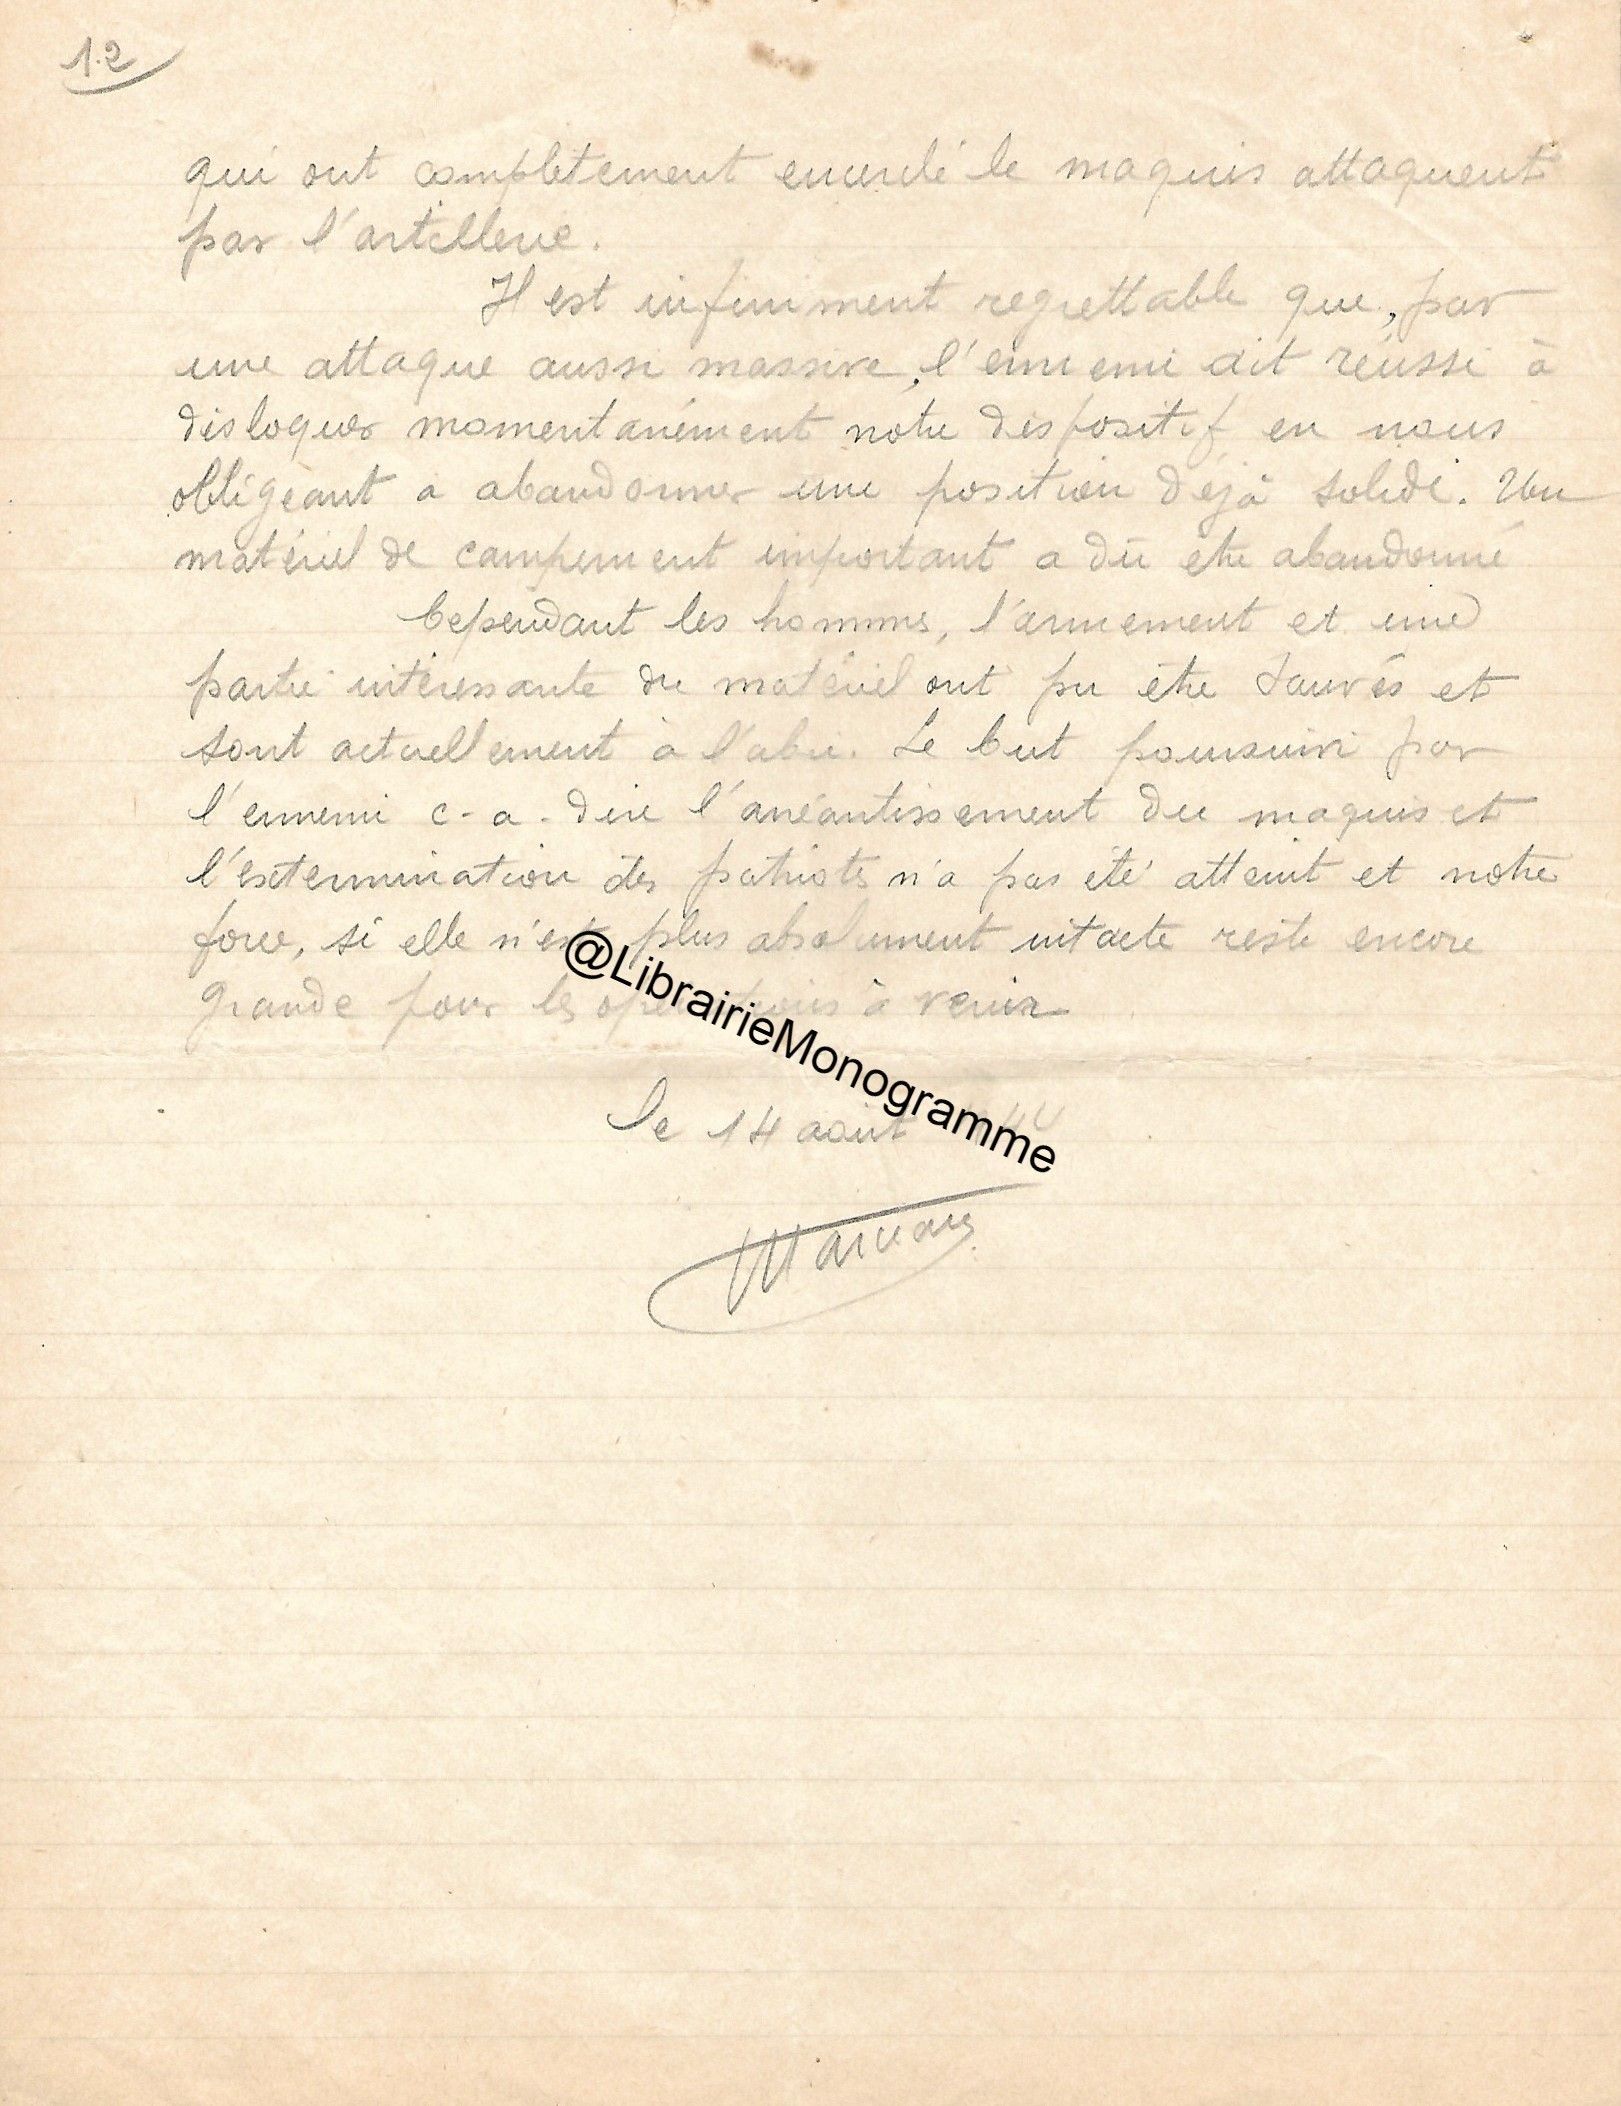 12
qui ont completement encerclé le maquis attaquent
par l'artillerie.
Il est infiniment regrettable que, par
une attaque aussi massive, l'ennemi ait réussi à
disloquer momentanément notre dispositif en nous
obligeant a abandonner une position déjà solide. Un
matériel de campement important a dû etre abandonné
Cependant les hommes, l'armement et une
partie intéressante du matériel ont pu être sauvés et
sont actuellement à l'abri. Le but poursuivi par
l'ennemi c-a-dire l'anéantissement du maquis et
l'extermination des patriotes n'a pas été atteint et notre
force, si elle n'est plus absolument intacte reste encore
grande pour les opérations à venir
le 14 août
@LibrairieMonogramme